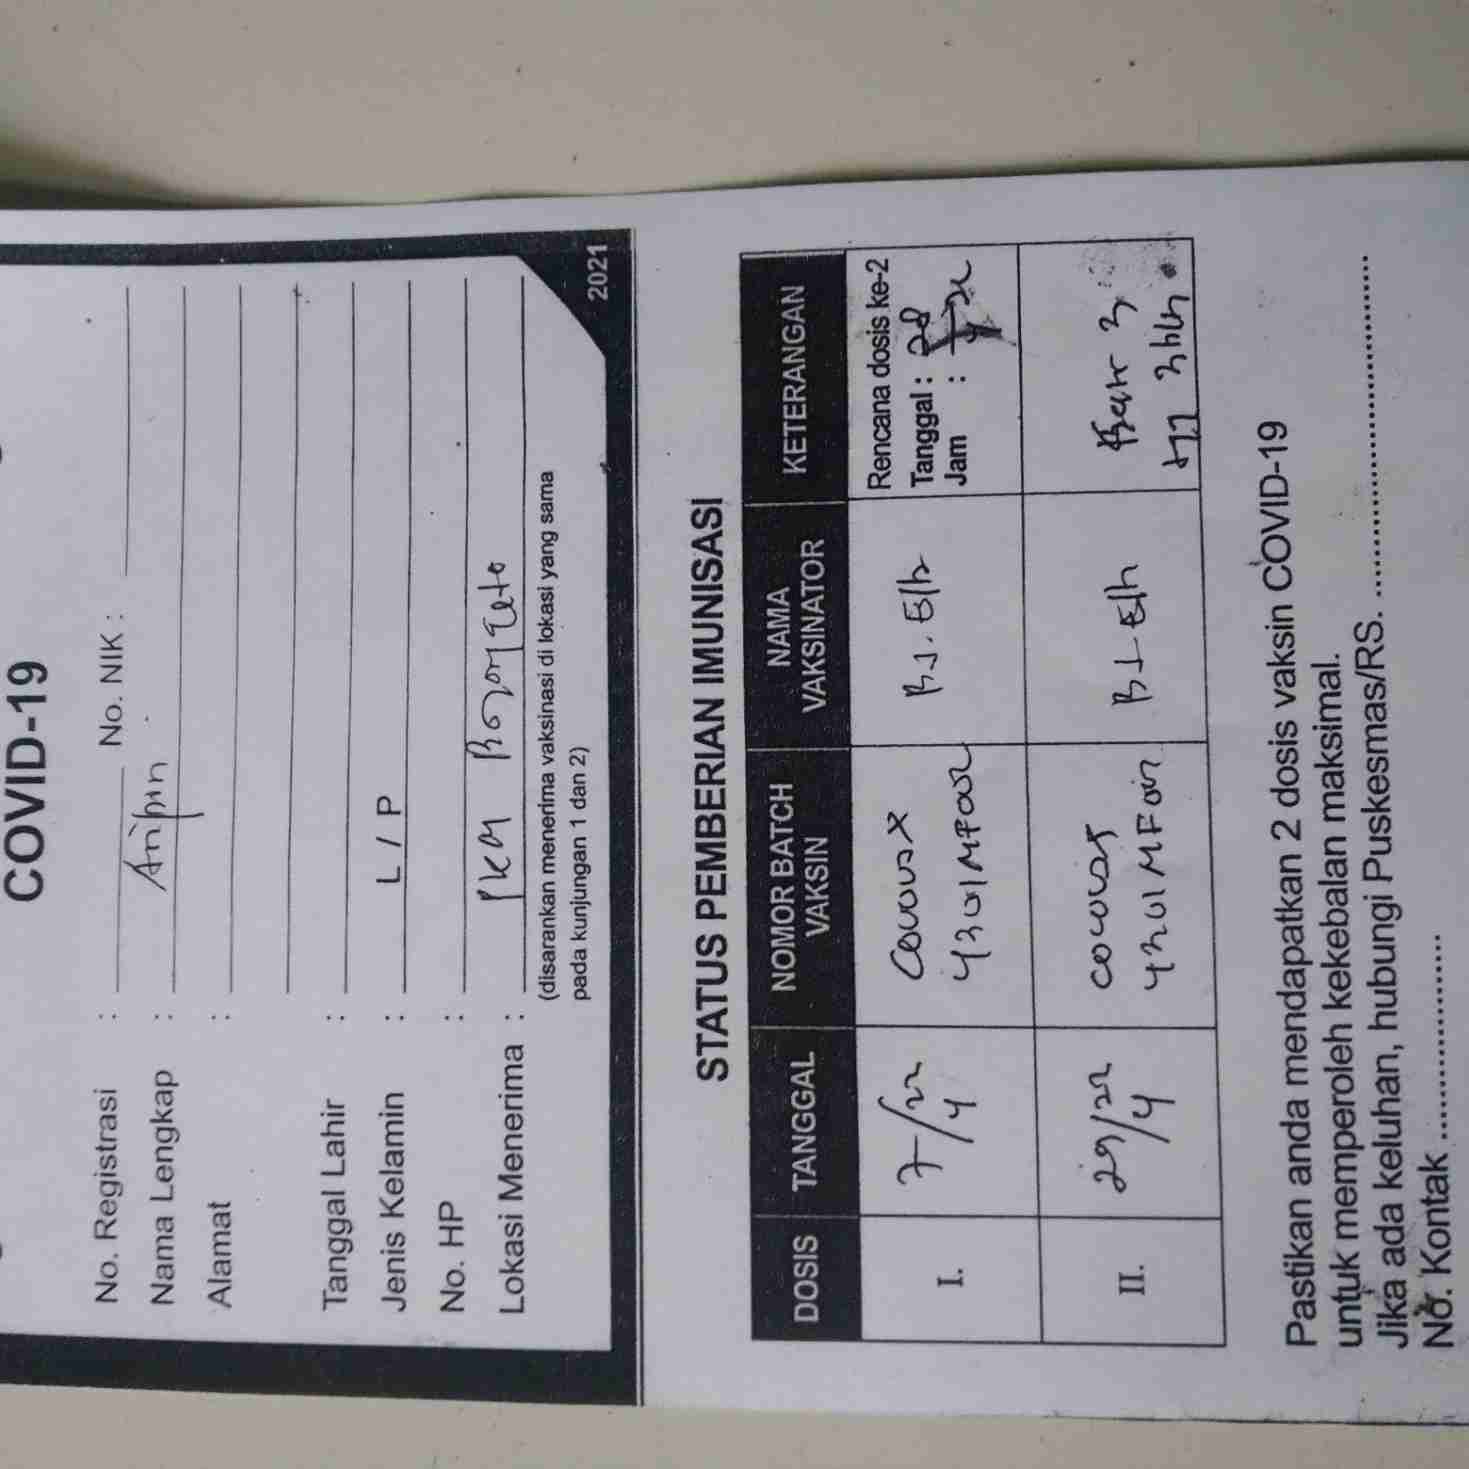 COVID-19
No. Registrasi : No. NIK :
Nama Lengkap : Aripin
Alamat :
Tanggal Lahir :
Jenis Kelamin : L / P
No. HP :
Lokasi Menerima : pkm
(disarankan menerima vaksinasi di lokasi yang sama
pada kunjungan 1 dan 2)
2021
STATUS PEMBERIAN IMUNISASI
DOSIS TANGGAL NOMOR BATCH VAKSIN NAMA VAKSINATOR KETERANGAN
I. 7/4 22 Rencana dosis ke-2
Tanggal : 28
Jam :
II. 29/4 22
Pastikan anda mendapatkan 2 dosis vaksin COVID-19
untuk memperoleh kekebalan maksimal.
Jika ada keluhan, hubungi Puskesmas/RS. ..............................
No. Kontak ....................